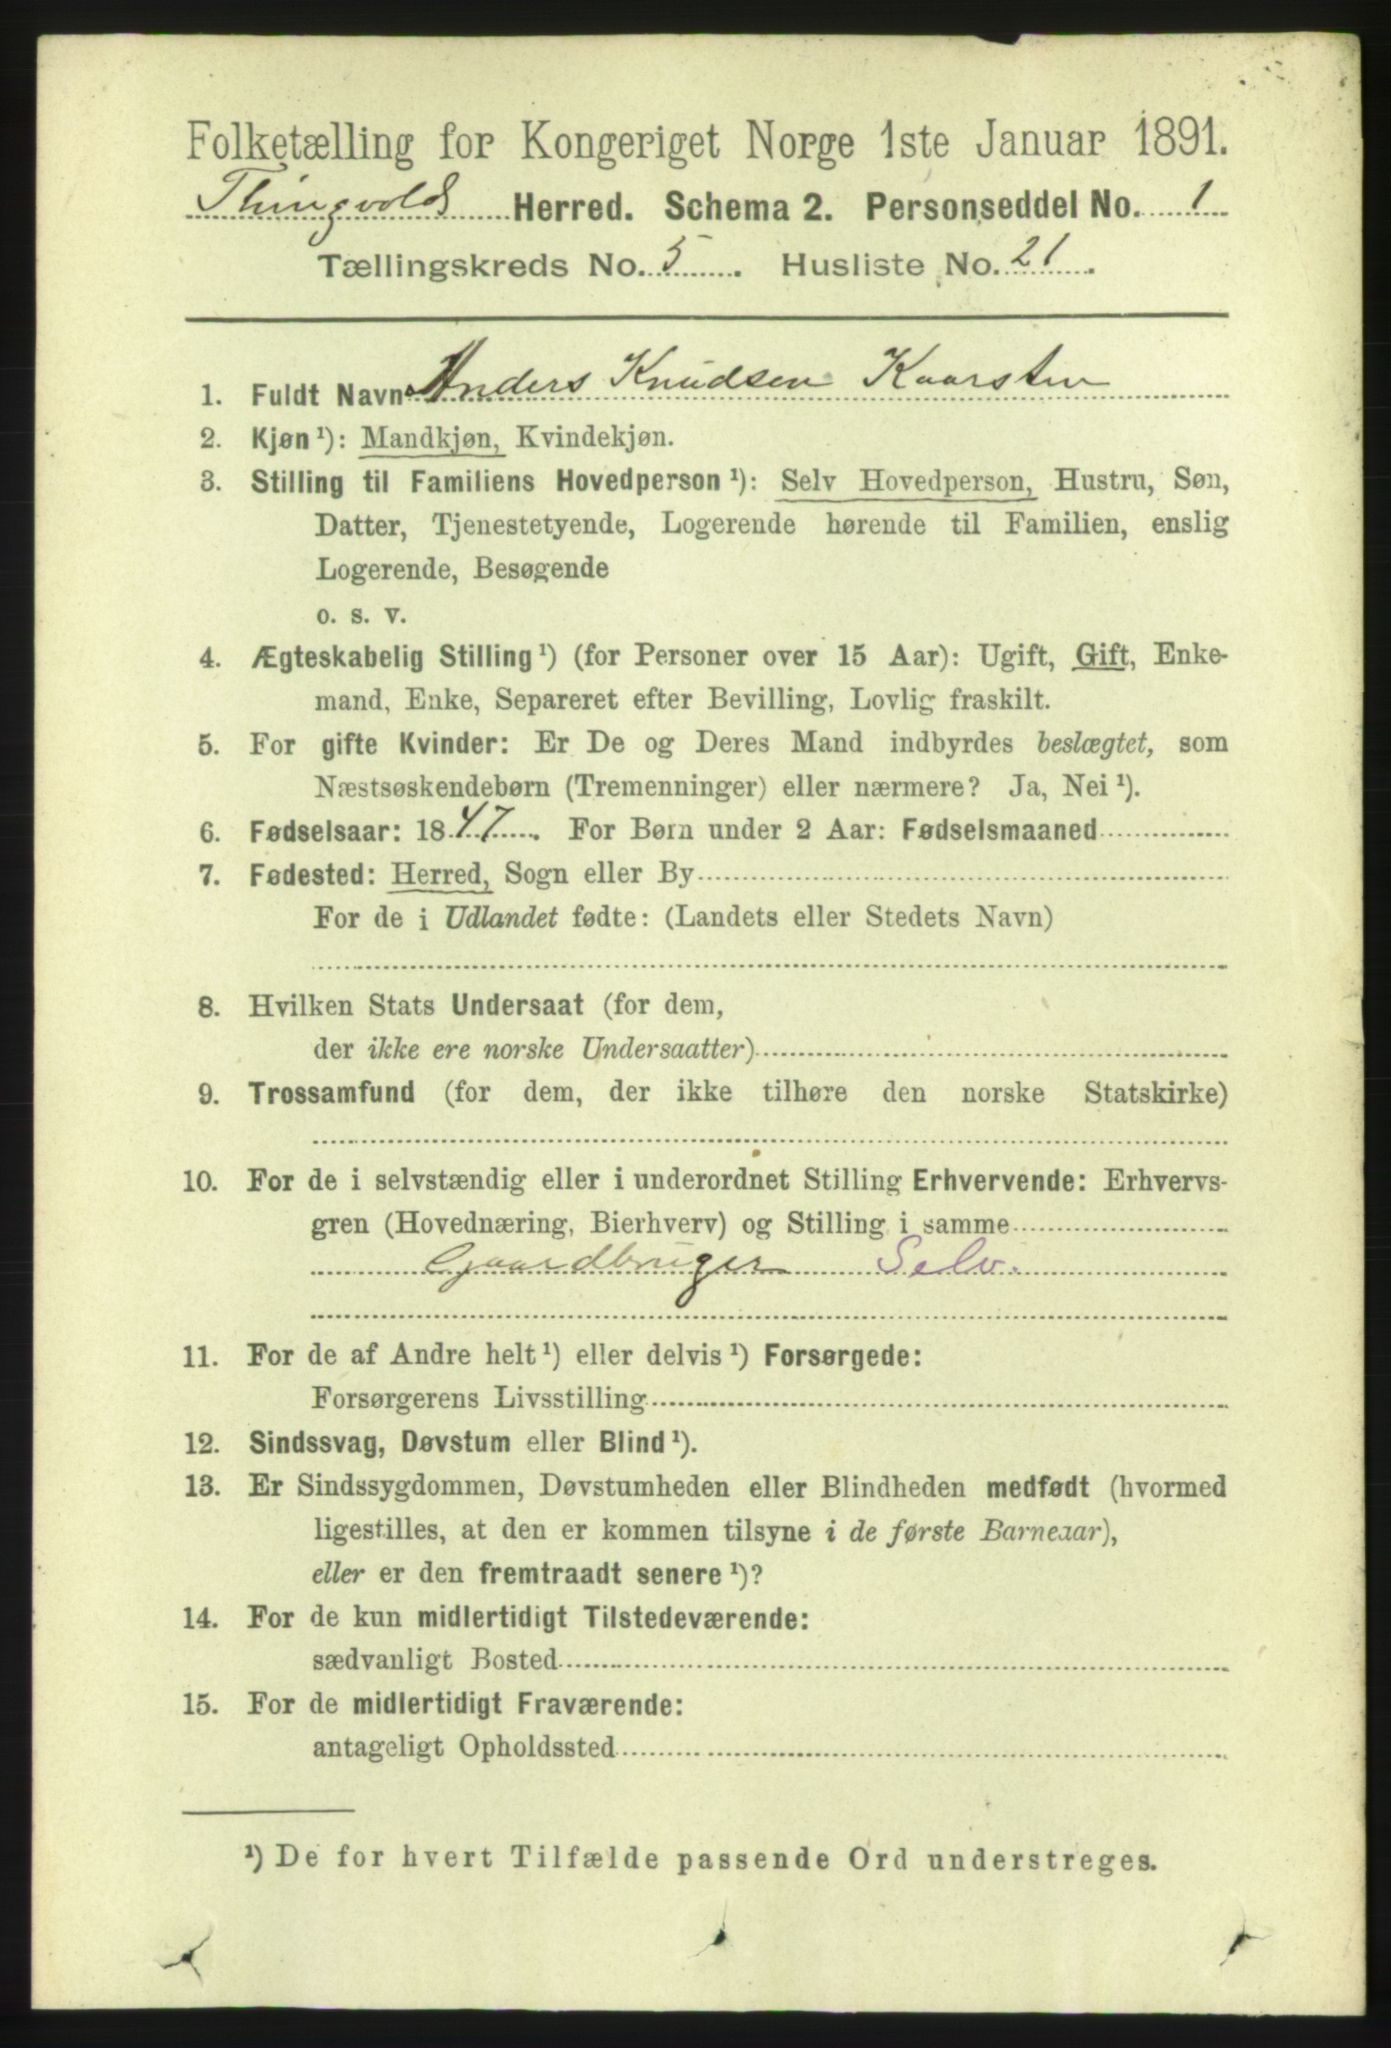 Folketælling for Kongeriget Norge 1ste Januar 1891.
Thingvold Herred. Schema 2. Personseddel No. 1
Tællingskreds No. 5. Husliste No. 21.
1. Fuldt Navn Anders Knudsen Kaarsten
2. Kjøn¹): Mandkjøn, Kvindekjøn.
3. Stilling til Familiens Hovedperson¹): Selv Hovedperson, Hustru, Søn,
Datter, Tjenestetyende, Logerende hørende til Familien, enslig
Logerende, Besøgende
o. s. v.
4. Ægteskabelig Stilling¹) (for Personer over 15 Aar): Ugift, Gift, Enke-
mand, Enke, Separeret efter Bevilling, Lovlig fraskilt.
5. For gifte Kvinder: Er De og Deres Mand indbyrdes beslægtet, som
Næstsøskendebørn (Tremenninger) eller nærmere? Ja, Nei¹).
6. Fødselsaar: 1847. For Børn under 2 Aar: Fødselsmaaned
7. Fødested: Herred, Sogn eller By
For de i Udlandet fødte: (Landets eller Stedets Navn)
8. Hvilken Stats Undersaat (for dem,
der ikke ere norske Undersaatter)
9. Trossamfund (for dem, der ikke tilhøre den norske Statskirke)
10. For de i selvstændig eller i underordnet Stilling Erhvervende: Erhvervs-
gren (Hovednæring, Bierhverv) og Stilling i samme
Gaardbruger Selv.
11. For de af Andre helt¹) eller delvis¹) Forsørgede:
Forsørgerens Livsstilling
12. Sindssvag, Døvstum eller Blind¹).
13. Er Sindssygdommen, Døvstumheden eller Blindheden medfødt (hvormed
ligestilles, at den er kommen tilsyne i de første Barneaar),
eller er den fremtraadt senere¹)?
14. For de kun midlertidigt Tilstedeværende:
sædvanligt Bosted
15. For de midlertidigt Fraværende:
antageligt Opholdssted
¹) De for hvert Tilfælde passende Ord understreges.